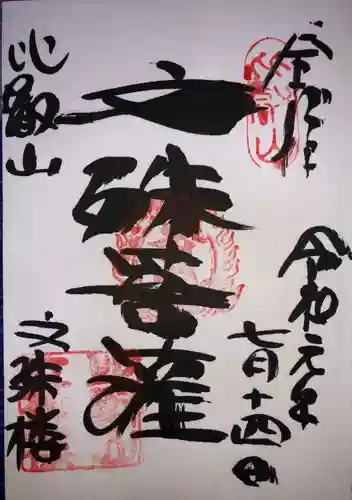 奉拝
令和元年
七月十四日
文殊菩薩
比叡山
文殊楼